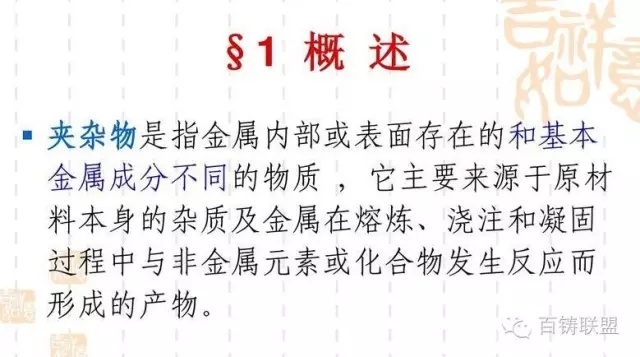 §1 概 述
吉祥如意
夹杂物是指金属内部或表面存在的和基本
金属成分不同的物质 ，它主要来源于原材
料本身的杂质及金属在熔炼、浇注和凝固
过程中与非金属元素或化合物发生反应而
形成的产物。
百铸联盟